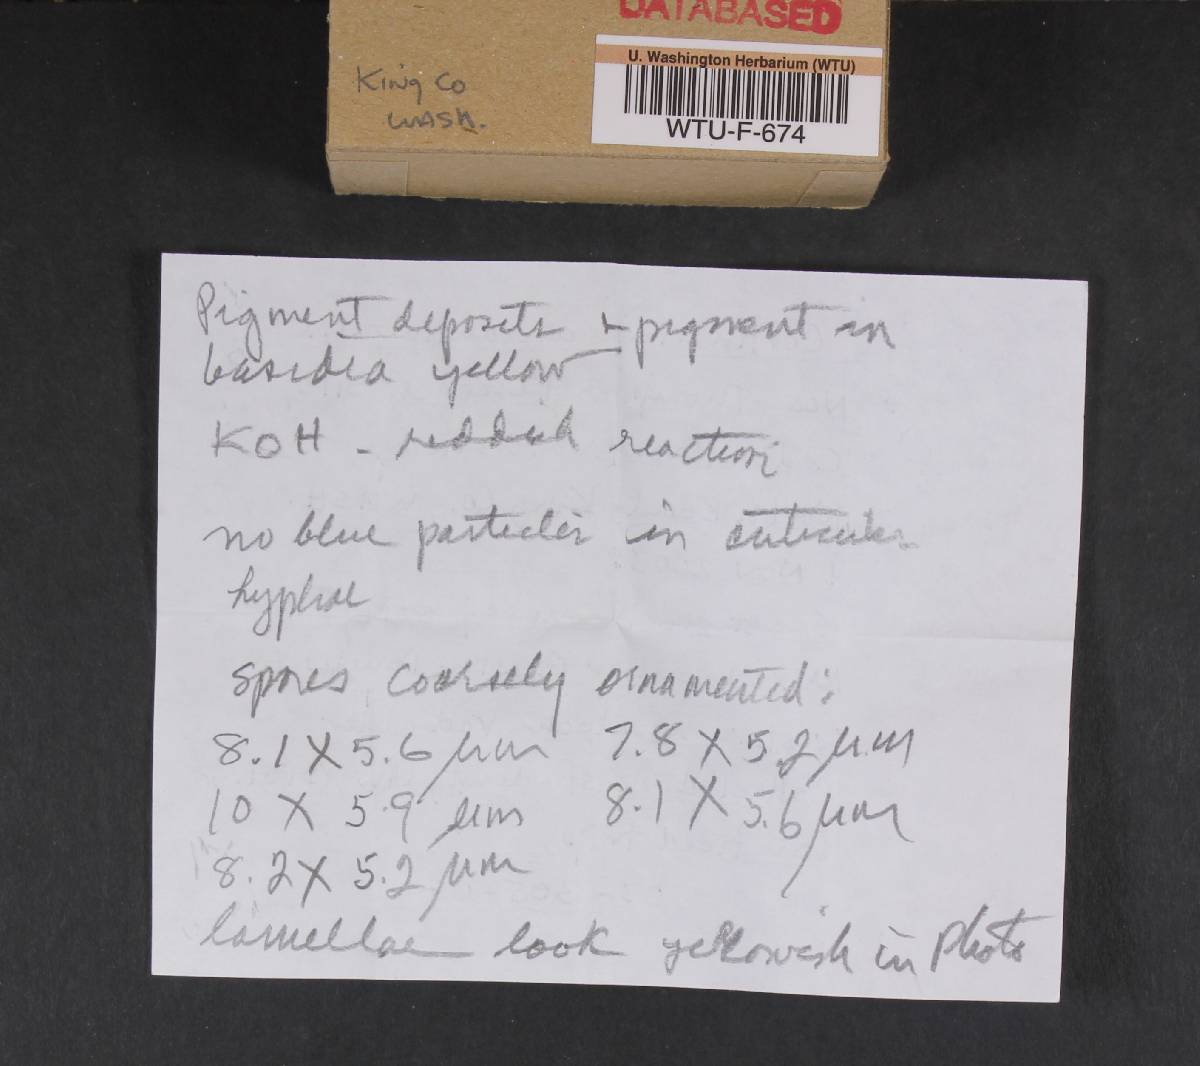 DATABASED
U. Washington Herbarium (WTU)
WTU-F-674
King Co
WASH.
Pigment deposits + pigment in
basidia yellow
KOH - reddish reaction
no blue particles in cuticular
hyphae
spores coarsely ornamented:
8.1 X 5.6 µm 7.8 X 5.2 µm
10 X 5.9 µm 8.1 X 5.6 µm
8.2 X 5.2 µm
lamellae look yellowish in photo